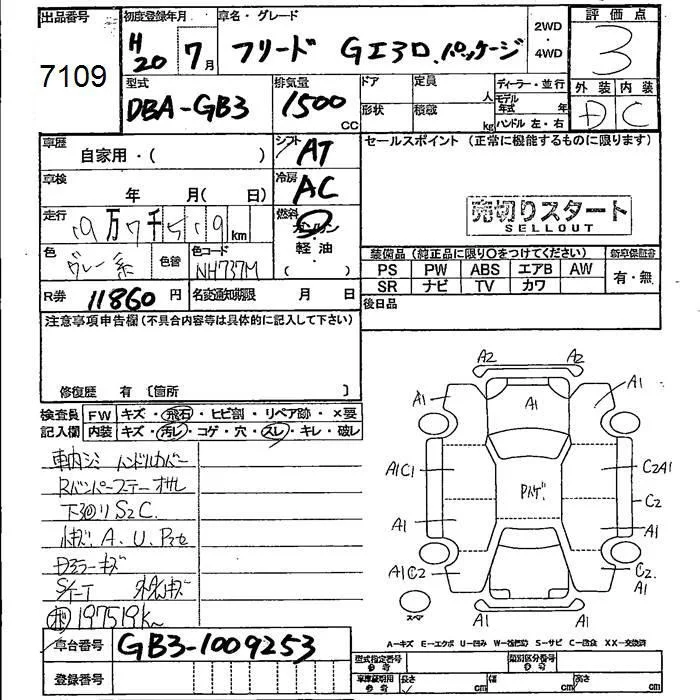 出品番号
7109
初度登録年月
H20 7月
車名・グレード
フリード Gエアロ.パッケージ
2WD・4WD
評価点
3
型式
DBA-GB3
排気量
1500 CC
ドア
定員 人
形状
積載 kg
ディーラー・並行
モデル年式 年
ハンドル 左・右
外装 内装
D C
車歴
自家用・( )
シフト AT
車検
年 月( 日)
冷房 AC
走行
19万7千519km
燃料
ガソリン・軽油
色
グレー系
色替
色コード
NH737M
R券 11860 円
名変通知期限 月 日
セールスポイント (正常に機能するものに限ります)
売切りスタート
SELLOUT
装備品 (純正品に限り○をつけてください)
新車保証書
PS PW ABS エアB AW
SR ナビ TV カワ
有・無
後日品
注意事項申告欄(不具合内容等は具体的に記入して下さい)
修復歴 有〔箇所 〕
検査員記入欄
FW キズ・飛石・ヒビ割・リペア跡・×要
内装 キズ・汚レ・コゲ・穴・スレ・キレ・破レ
車内シミ ハンドルカバー
Rバンパーステー
下廻り S2 C
小キズ. A. U. P
Dミラーキズ
197519K
A2 A2
A1 A1 A1
A1C1 C2A1
Pルーゲ.
C2
A1 A1
A1C2 C2.A1
スペア
A1 A1
A-キズ E-エクボ U-凹み W-補修跡 S-サビ C-腐食 XX-交換済
車台番号 GB3-1009253
登録番号
型式指定番号
類別区分番号
参考
長さ cm
幅 cm
高さ cm